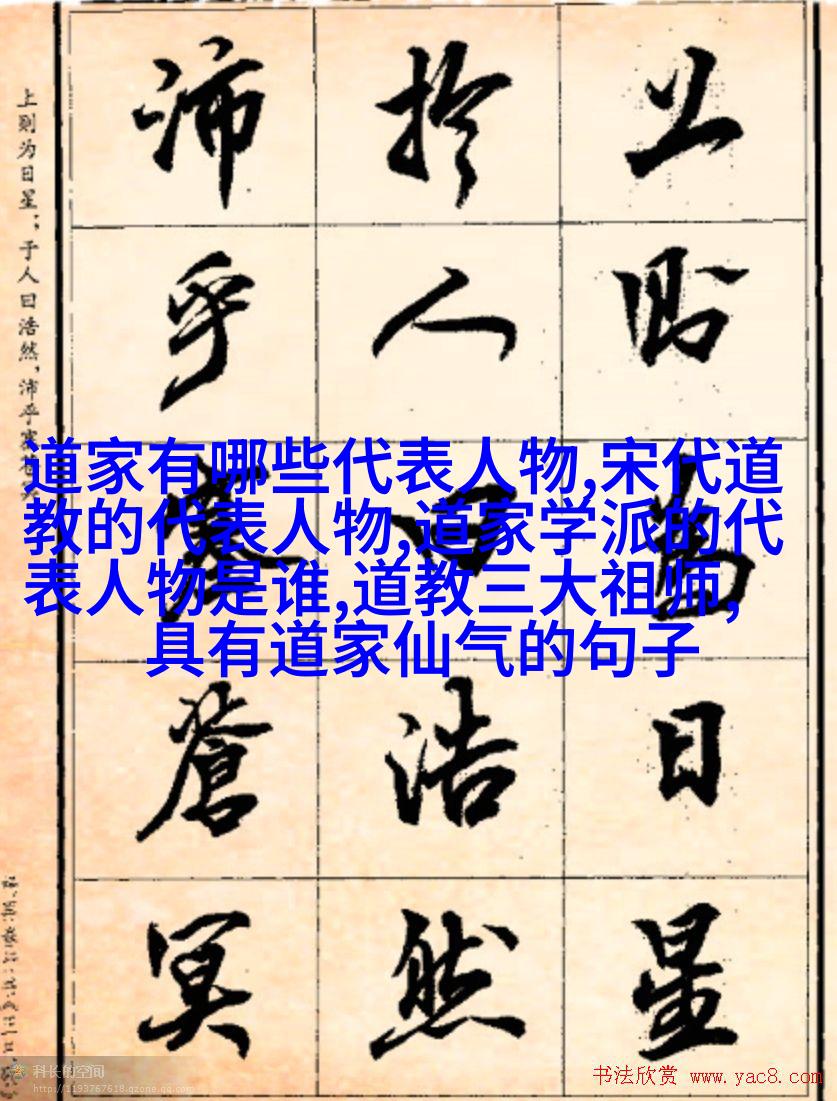 上则为日星；于人曰浩然，沛乎塞苍冥
上則為日星
於人曰浩然
沛乎塞蒼冥
道家有哪些代表人物,宋代道
教的代表人物,道家学派的代
表人物是谁,道教三大祖师,
具有道家仙气的句子
科长的空间
http://1193767618.qzone.qq.com
书法欣赏 www.yac8.com